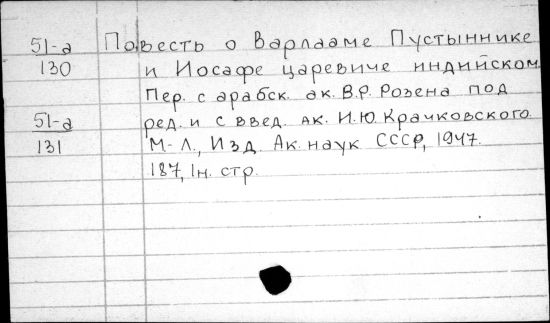 51-а Повесть о Варлааме Пустыннике
130 и Иосафе царевиче индийском
Пер. с арабск. ак. В.Р. Розена под
51-а ред. и с введ. ак. И.Ю. Крачковского.
131 М-Л., Изд. Ак. наук СССР, 1947.
187, 1н. стр.